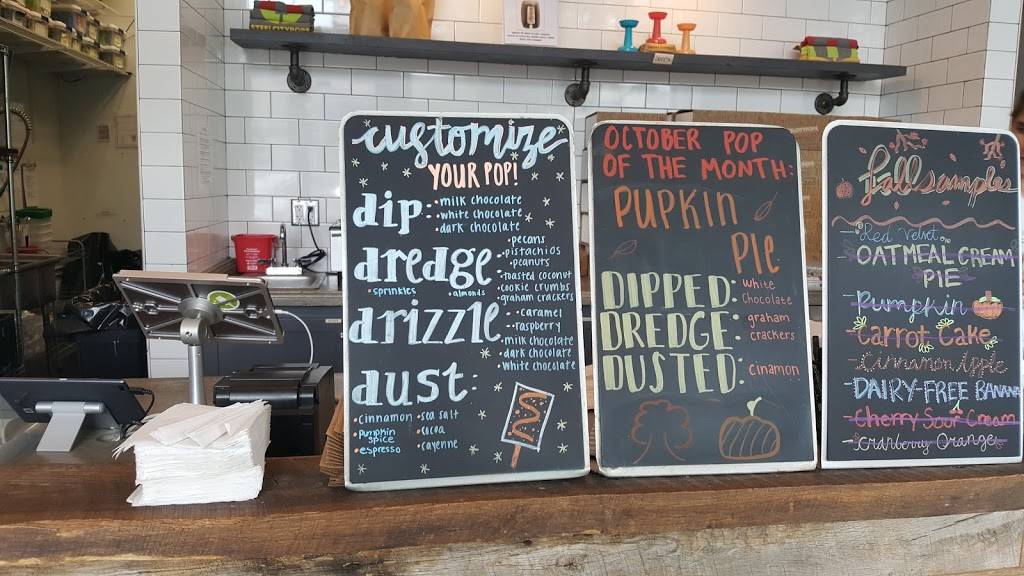 customize
YOUR POP!
dip:
• milk chocolate
• white chocolate
• dark chocolate
dredge
• pecans
• pistachios
• peanuts
• toasted coconut
• cookie crumbs
• graham crackers
• sprinkles
• almonds
drizzle
• caramel
• raspberry
• milk chocolate
• dark chocolate
• white chocolate
dust:
• cinnamon
• pumpkin spice
• espresso
• sea salt
• cocoa
• cayenne
OCTOBER POP
OF THE MONTH:
PUPKIN
PIE
DIPPED:
white
chocolate
DREDGE:
graham
crackers
DUSTED:
cinnamon
fall samples
- Red Velvet
- OATMEAL CREAM
PIE
- Pumpkin
- Carrot Cake
- Cinnamon Apple
- DAIRY-FREE BANANA
- Cherry Sour Cream
- Cranberry Orange